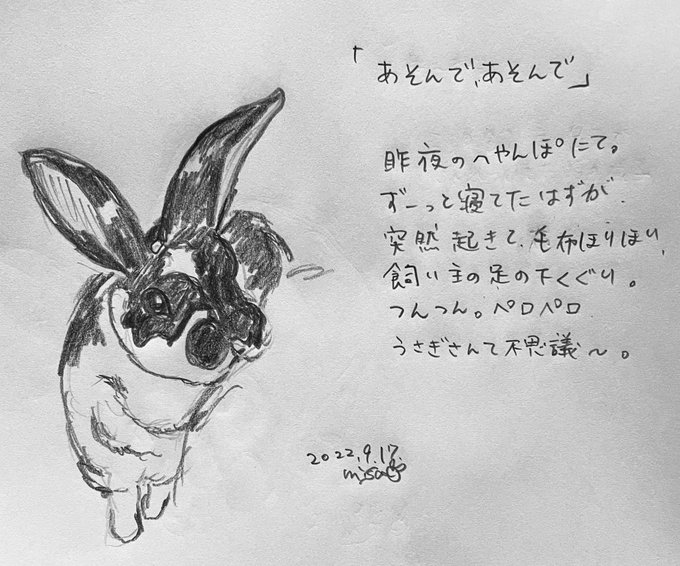 「あそんで、あそんで」
昨夜のへやんぽにて。
ずーっと寝てたはずが、
突然起きて、毛布ほりほり、
飼い主の足の下くぐり。
つんつん。ペロペロ
うさぎさんて不思議〜。
2022.9.17.